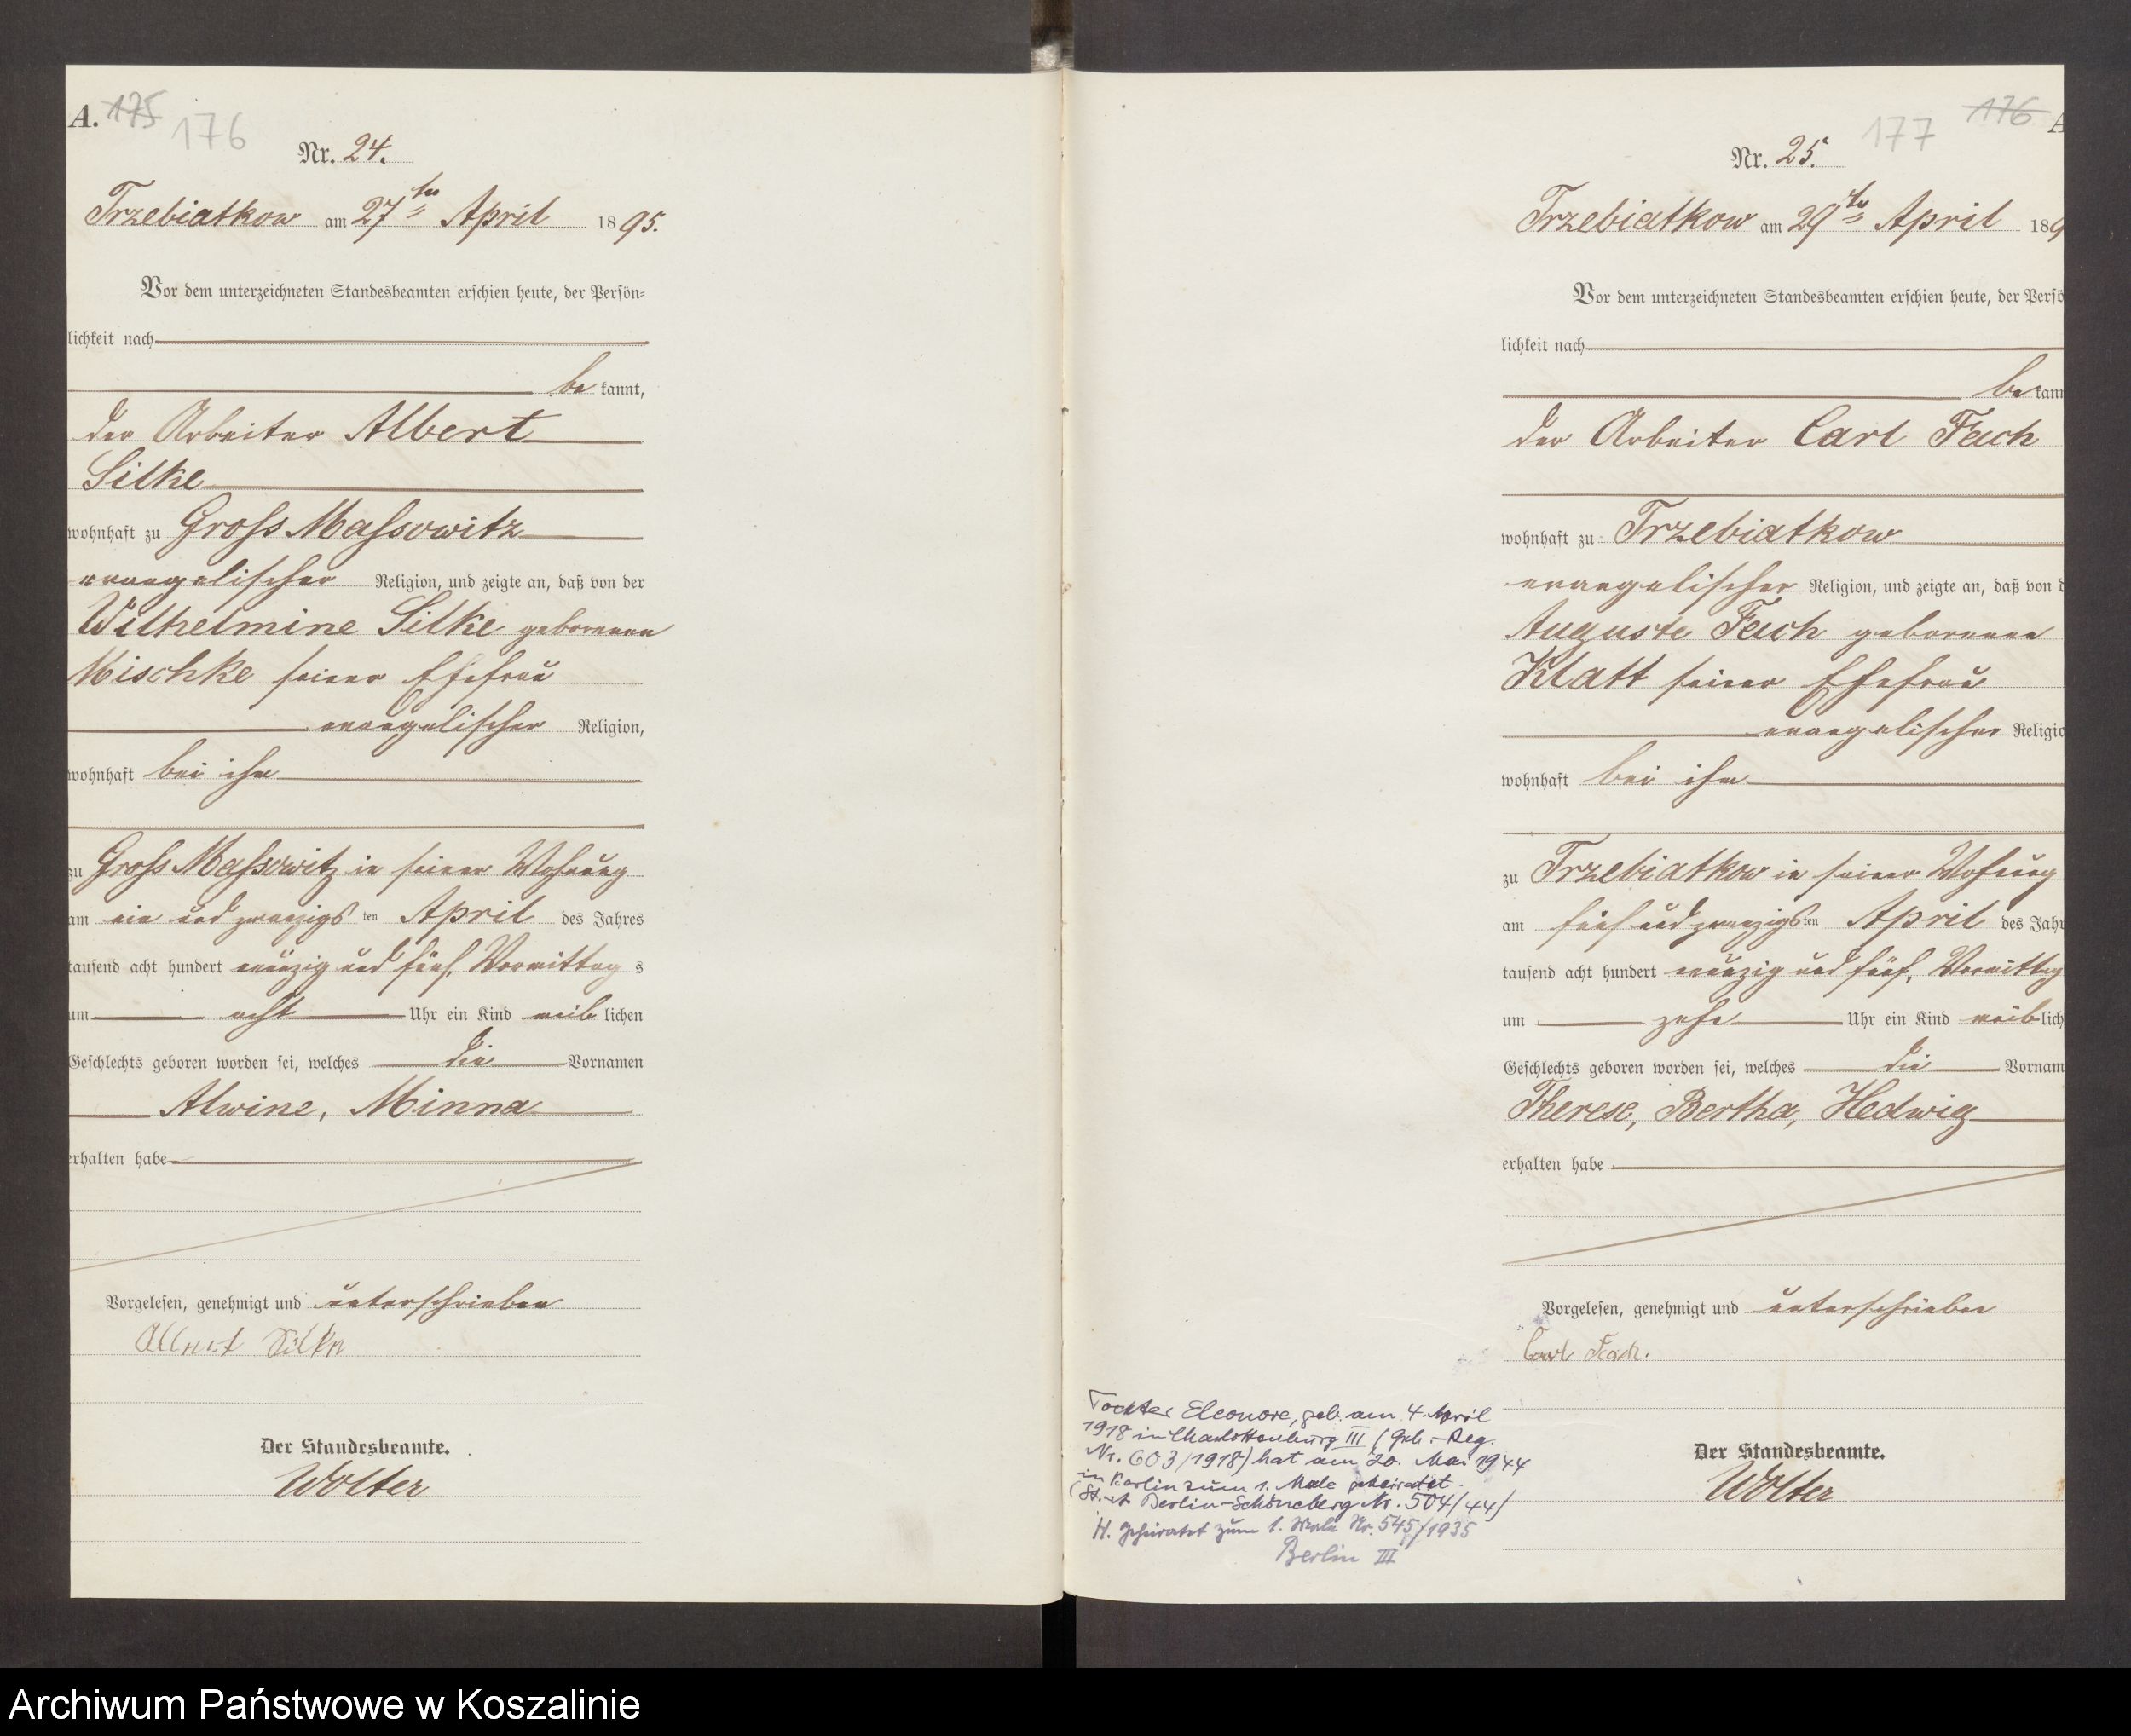 A. 175 176
Nr. 24.
Trzebiatkow am 27ten April 1895.
Vor dem unterzeichneten Standesbeamten erschien heute, der Persön=
lichkeit nach
be kannt,
der Arbeiter Albert
Silke
wohnhaft zu Gross Massowitz
evangelischer Religion, und zeigte an, daß von der
Wilhelmine Silke geborenen
Mischke seiner Ehefrau
evangelischer Religion,
wohnhaft bei ihm
zu Gross Massowitz in seiner Wohnung
am ein und zwanzigsten April des Jahres
tausend acht hundert neunzig und fünf, Vormittags
um acht Uhr ein Kind weiblichen
Geschlechts geboren worden sei, welches die Vornamen
Alwine, Minna
erhalten habe
Vorgelesen, genehmigt und unterschrieben
Albert Silke
Der Standesbeamte.
Wolter
177 176 A
Nr. 25.
Trzebiatkow am 29ten April 189
Vor dem unterzeichneten Standesbeamten erschien heute, der Persö
lichkeit nach
be kann
der Arbeiter Carl Fach
wohnhaft zu Trzebiatkow
evangelischer Religion, und zeigte an, daß von d
Auguste Fach geborenen
Klatt seiner Ehefrau
evangelischer Religio
wohnhaft bei ihm
zu Trzebiatkow in seiner Wohnung
am fünf und zwanzigsten April des Jahr
tausend acht hundert neunzig und fünf, Vormittag
um zehn Uhr ein Kind weiblich
Geschlechts geboren worden sei, welches die Vornam
Therese, Bertha, Hedwig
erhalten habe
Vorgelesen, genehmigt und unterschrieben
Carl Fach.
Der Standesbeamte.
Wolter
Tochter Eleonore, geb. am 4. April
1918 in Charlottenburg III (Geb.-Reg.
Nr. 603/1918) hat am 20. Mai 1944
in Berlin zum 1. Male geheiratet.
(St.-A. Berlin-Schöneberg Nr. 504/44)
H. geheiratet zum 1. Male Nr. 545/1935
Berlin III
Archiwum Państwowe w Koszalinie